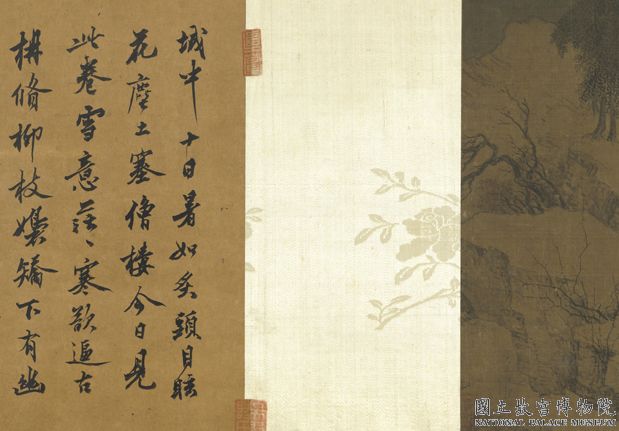 城中十日暑如炙頭目眩
花塵土塞僧樓今日見
此卷雪意茫〻寒欲逼古
柟脩柳枝矯下有幽
國立故宮博物院
NATIONAL PALACE MUSEUM